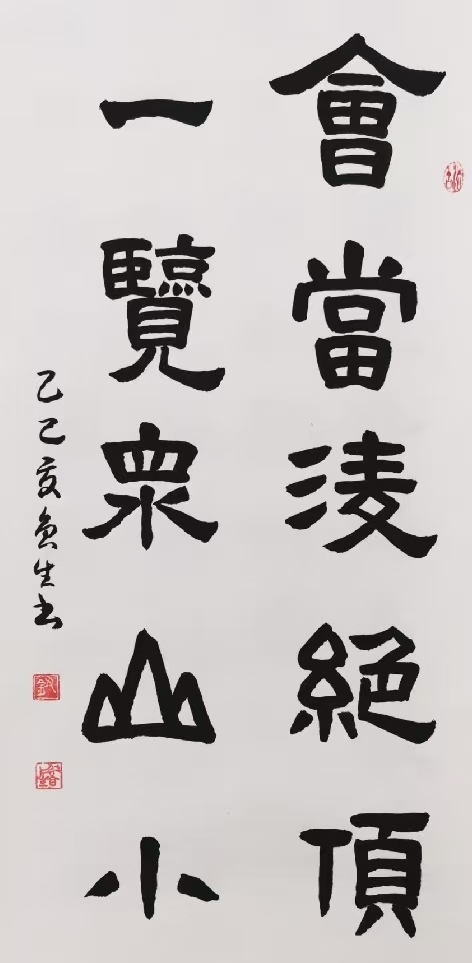 會當淩絕頂
一覽衆山小
乙巳夏生书